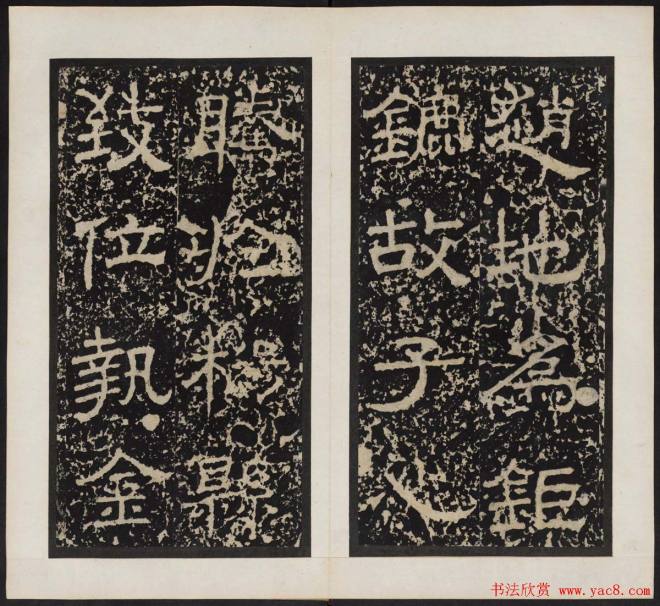 趙地爲鉅
鏕故子心
騰於楊縣
致位執金
书法欣赏 www.yac8.com